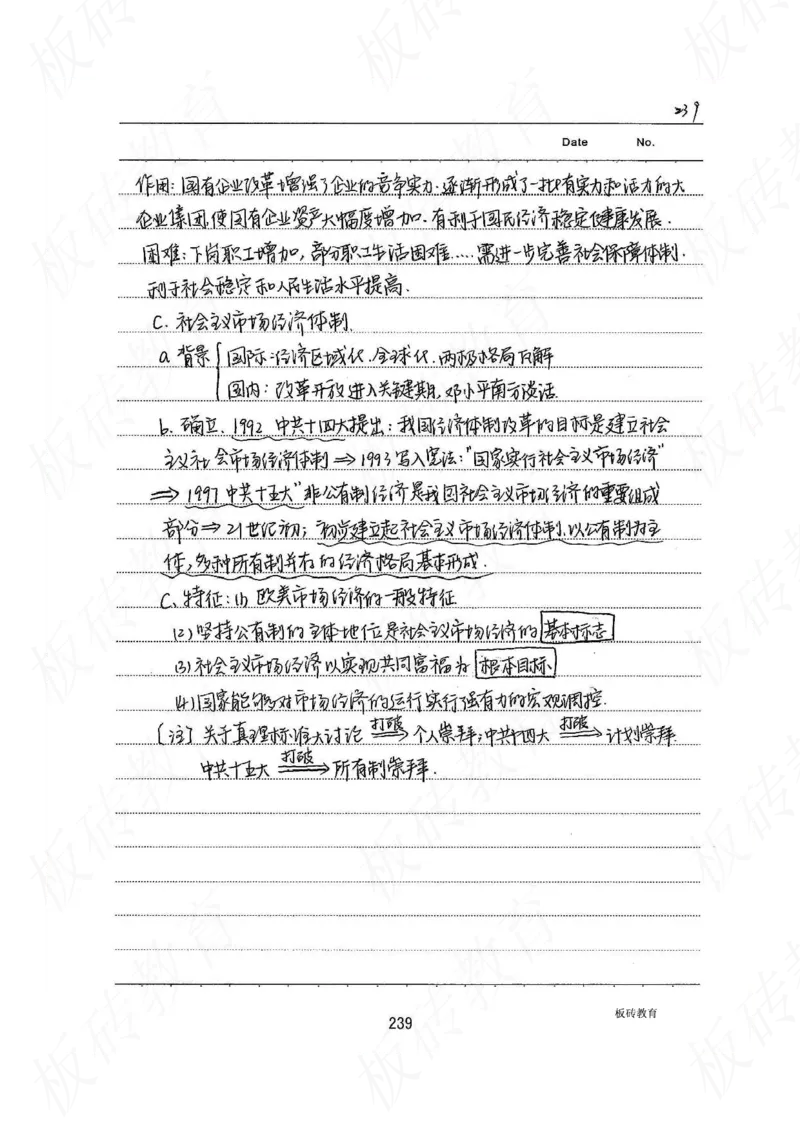 239
Date No.
作用：国有企业改革增强了企业的竞争实力.逐渐形成了一批有实力和活力的大
企业集团,使国有企业资产大幅度增加.有利于国民经济稳定健康发展.
困难：下岗职工增加，部分职工生活困难.....需进一步完善社会保障体制.
利于社会稳定和人民生活水平提高.
C. 社会主义市场经济体制.
a 背景
国际：经济区域化.全球化.两极格局瓦解
国内：改革开放进入关键期,邓小平南方谈话.
b. 确立、1992 中共十四大提出：我国经济体制改革的目标是建立社会
主义社会市场经济体制⇒1993写入宪法:"国家实行社会主义市场经济"
⇒1997中共十五大"非公有制经济是我国社会主义市场经济的重要组成
部分⇒21世纪初；初步建立起社会主义市场经济体制.以公有制为主
体,多种所有制并存的经济格局基本形成.
C、特征：(1) 欧美市场经济的一般特征
(2)坚持公有制的主体地位是社会主义市场经济的基本标志
(3)社会主义市场经济以实现共同富福为根本目标
(4)国家能够对市场经济的运行实行强有力的宏观调控.
[注] 关于真理标准大讨论 打破⇒ 个人崇拜,中共十四大 打破⇒ 计划崇拜.
中共十五大 打破⇒ 所有制崇拜.
239
板砖教育